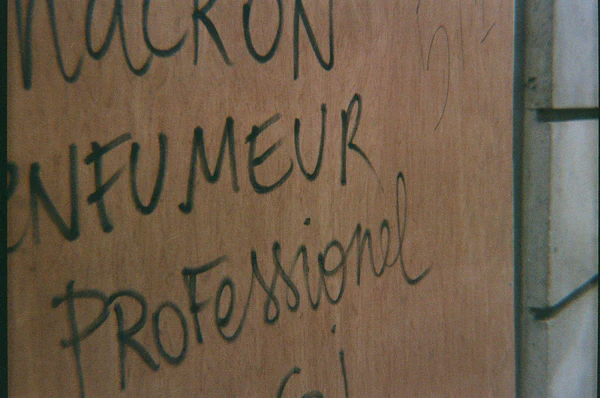 MACRON
ENFUMEUR
PROFessionel